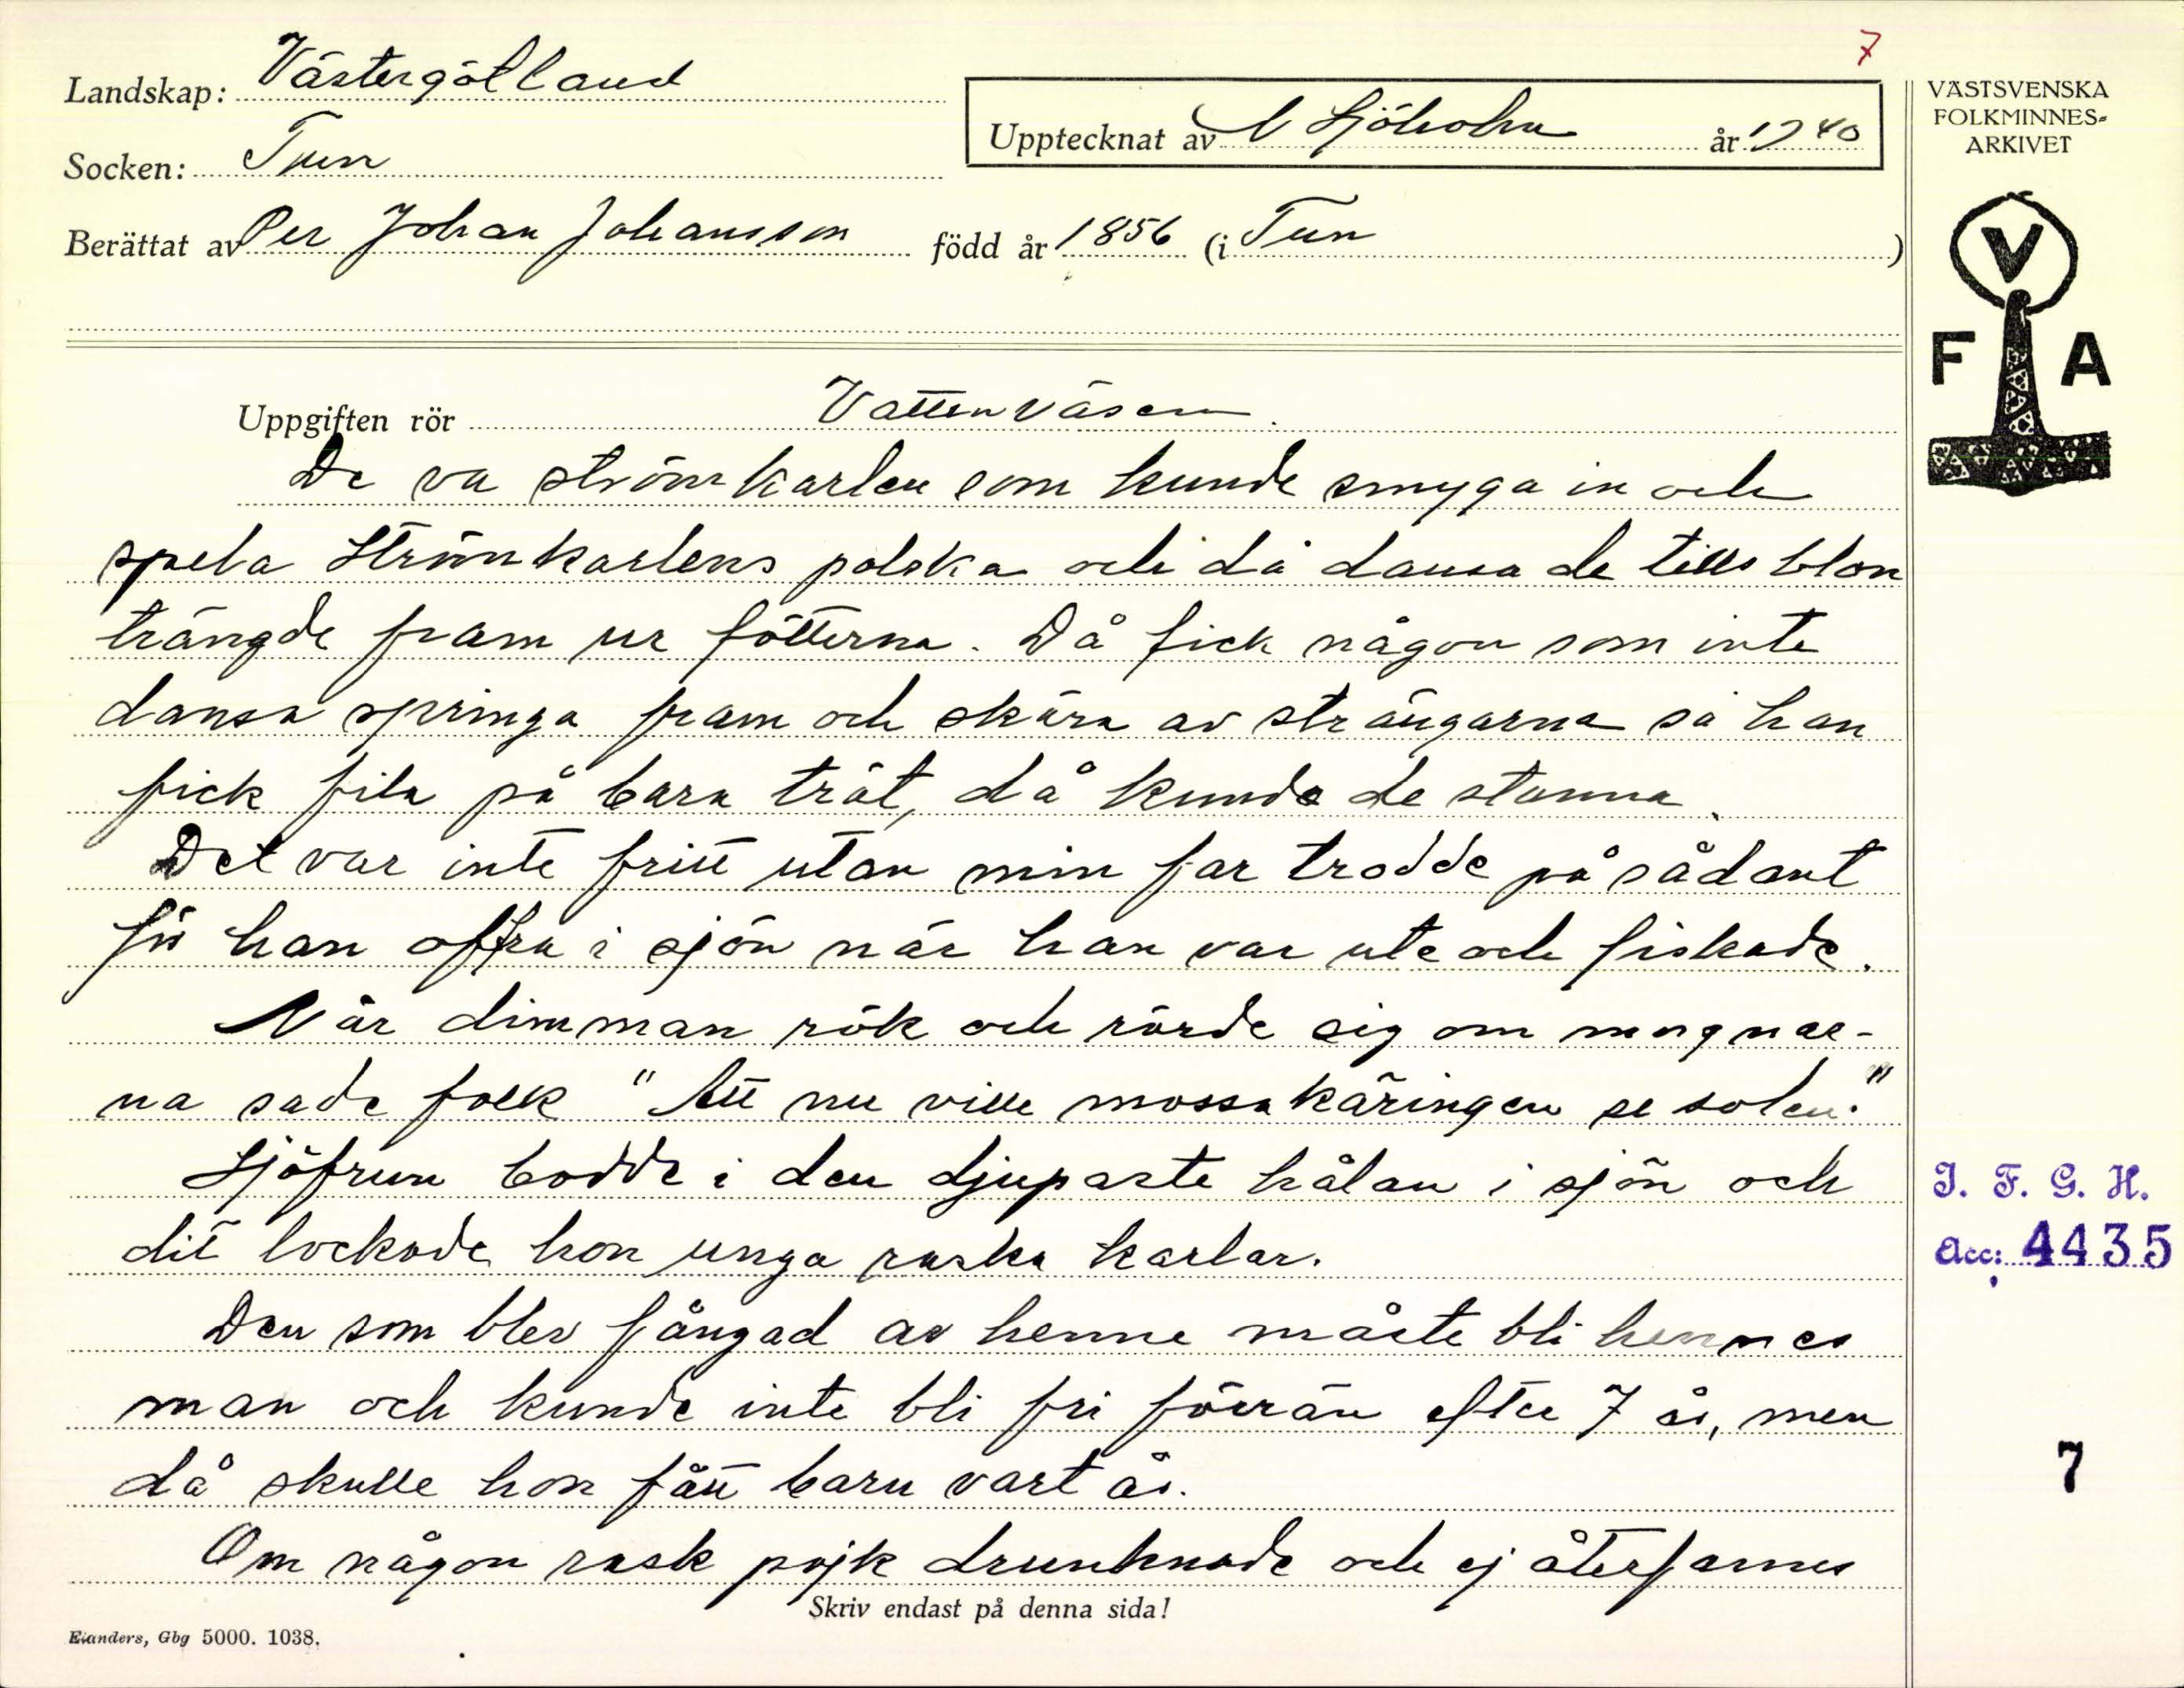 7
Landskap: Västergötland
Upptecknat av N Sjöholm år 1940
VÄSTSVENSKA
FOLKMINNES-
ARKIVET
Socken: Tun
Berättat av Per Johan Johansson född år 1856 (i Tun )
V
F A
Uppgiften rör Vattenväsen.
De va strömkarlen som kunde smyga in och
spela Strömkarlens polska och då dansa de tills blon
trängde fram ur fötterna. Då fick någon som inte
dansa springa fram och skära av strängarna så han
fick fila på bara trät, då kunde de stanna.
Det var inte fritt utan min far trodde på sådant
för han offra i sjön när han var ute och fiskade.
När dimman rök och rörde sig om morgnar-
na sade folk "Att nu ville mossakäringen se solen."
Sjöfrun bodde i den djupaste hålan i sjön och
dit lockade hon unga raska karlar.
Den som blev fångad av henne måste bli hennes
man och kunde inte bli fri förrän efter 7 år, men
då skulle hon fått barn vart år.
Om någon rask pojk drunknade och ej återfannes
Skriv endast på denna sida!
Elanders, Gbg 5000. 1038.
I. F. G. H.
Acc: 4435
7